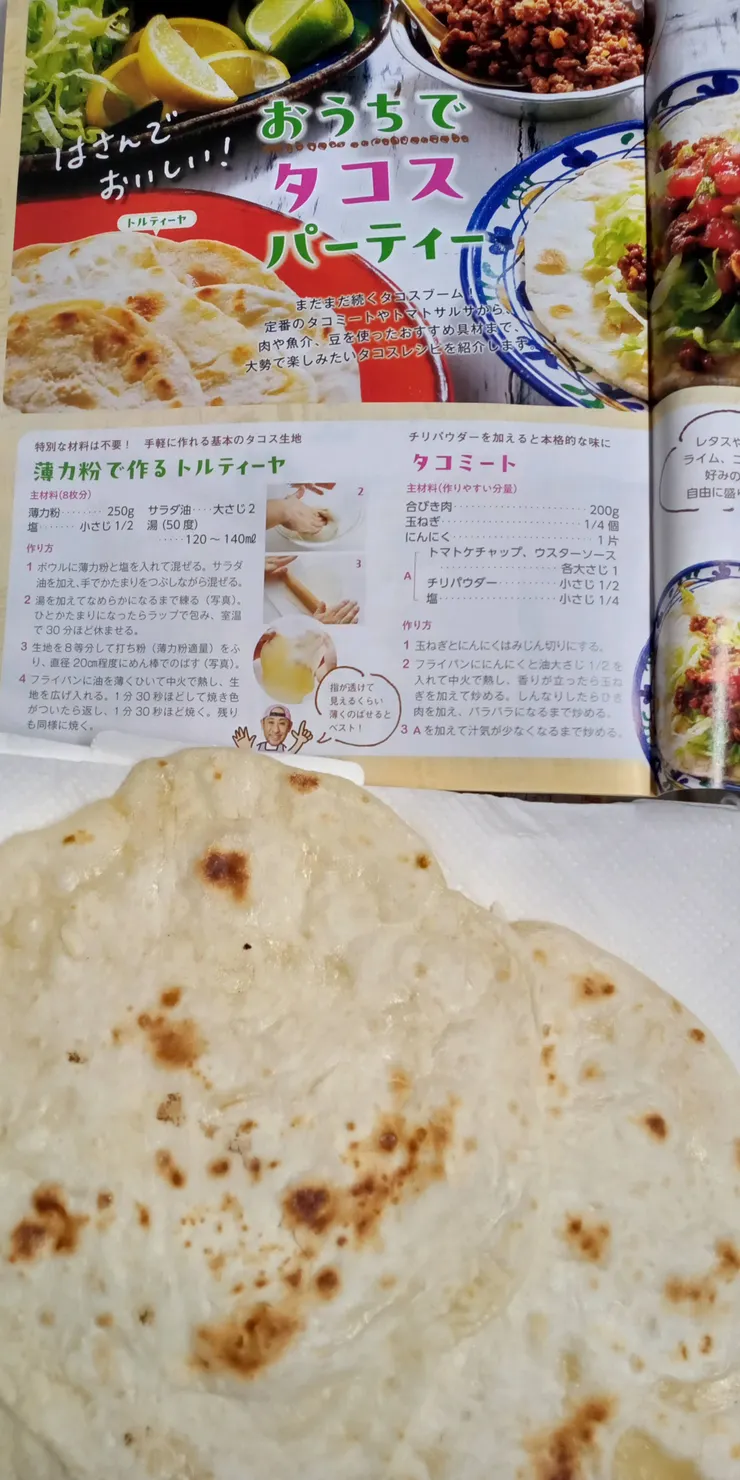 はさんで
おいしい！
おうちで
タコス
パーティー
トルティーヤ
まだまだ続くタコスブーム！
定番のタコミートやトマトサルサから、
肉や魚介、豆を使ったおすすめ具材まで、
大勢で楽しみたいタコスレシピを紹介します。
特別な材料は不要！　手軽に作れる基本のタコス生地
薄力粉で作るトルティーヤ
主材料(8枚分)
薄力粉‥‥‥‥250g　サラダ油‥‥大さじ2
塩‥‥‥小さじ1/2　湯(50度)
‥‥‥120～140㎖
作り方
1 ボウルに薄力粉と塩を入れて混ぜる。サラダ
油を加え、手でかたまりをつぶしながら混ぜる。
2 湯を加えてなめらかになるまで練る(写真)。
ひとかたまりになったらラップで包み、室温
で30分ほど休ませる。
3 生地を8等分して打ち粉(薄力粉適量)をふ
り、直径20cm程度にめん棒でのばす(写真)。
4 フライパンに油を薄くひいて中火で熱し、生
地を広げ入れる。1分30秒ほどして焼き色
がついたら返し、1分30秒ほど焼く。残り
も同様に焼く。
2
3
指が透けて
見えるくらい
薄くのばせると
ベスト！
チリパウダーを加えると本格的な味に
タコミート
主材料(作りやすい分量)
合びき肉‥‥‥‥‥‥‥‥‥‥200g
玉ねぎ‥‥‥‥‥‥‥‥‥‥1/4個
にんにく‥‥‥‥‥‥‥‥‥‥1片
トマトケチャップ、ウスターソース
‥‥‥‥‥‥‥‥各大さじ1
A
チリパウダー‥‥‥‥‥小さじ1/2
塩‥‥‥‥‥‥‥‥‥小さじ1/4
作り方
1 玉ねぎとにんにくはみじん切りにする。
2 フライパンににんにくと油大さじ1/2を
入れて中火で熱し、香りが立ったら玉ね
ぎを加えて炒める。しんなりしたらひき
肉を加え、パラパラになるまで炒める。
3 Aを加えて汁気が少なくなるまで炒める。
レタスや
ライム、コ
好みの
自由に盛り